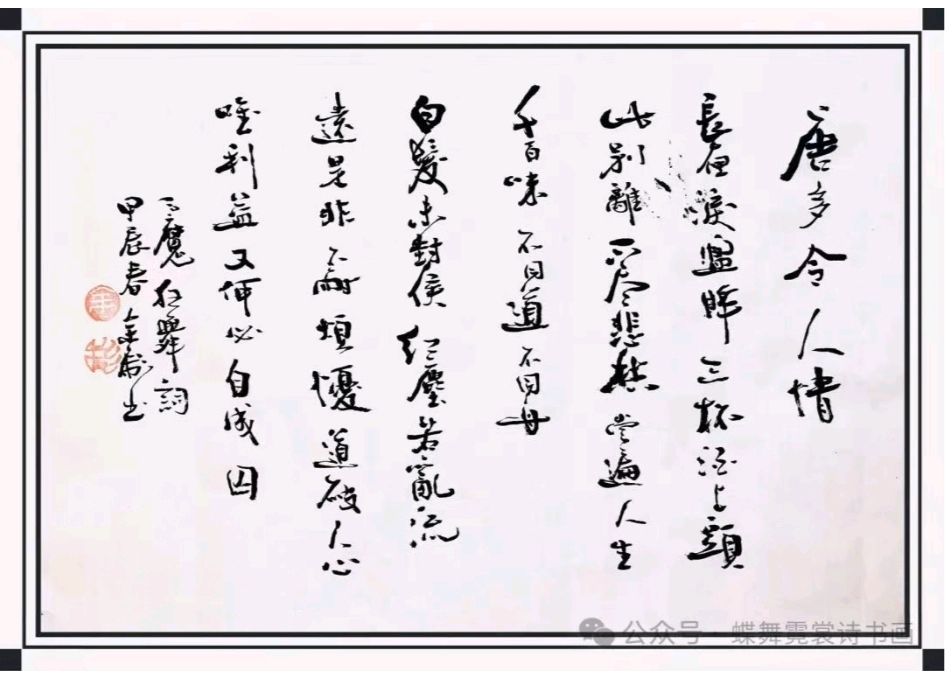 唐多令人情
長夜淚盈眸三杯酒上頭
此别離不尽悲愁嘗遍人生
千百味不同道不同舟
白髮未封侯红塵若亂流
遠是非不耐煩憂道破人心
唯利益又何必自成囚
魔狂舞詞
甲辰春金彬书
公众号·蝶舞霓裳诗书画